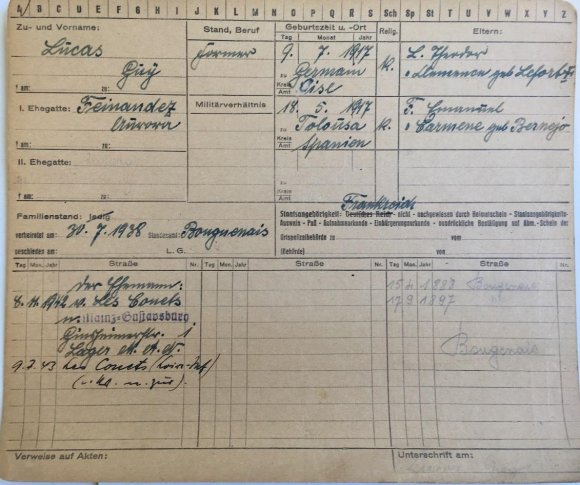 A B C D E F G H I J K L M N O P Q R S Sch Sp St T U V W X Y Z
Zu- und Vorname:
Stand, Beruf
Geburtszeit u. -Ort
Tag Monat Jahr
Relig.
Eltern:
Lucas
Guy
Former
9. 7. 1917
zu Germain
Kreis Amt Oise
K.
L. Theodor
Clemence geb Lefort
† am: zu:
I. Ehegatte: Feinandez
Aurora
Militärverhältnis
18. 5. 1917
zu Tolousa
Kreis Amt Spanien
K.
F. Emanuel
Carmene geb Bernejo
† am: zu:
II. Ehegatte:
zu
Kreis Amt
† am: zu:
Frankreich
Familienstand: ledig
verheiratet am: 30. 7. 1938 Standesamt: Bouguenais
geschieden am: L.G.
Staatsangehörigkeit: Deutsches Reich - nicht - nachgewiesen durch Heimatschein - Staatsangehörigkeits-
Ausweis - Paß - Aufnahmeurkunde - Einbürgerungsurkunde - ausdrückliche Bestätigung auf Abm.-Schein der
Ortspolizeibehörde zu vom
(Behörde) vom
Tag Mon. Jahr Straße Nr. Tag Mon. Jahr Straße Nr. Tag Mon. Jahr Straße Nr.
der Ehemann:
8. 11. 1942 v. Les Couets
n. Mainz-Gustavsburg
Ginsheimerstr. 1
Lager M.A.N.
9. 3. 43 Les Couets
15 4 1888
17 9 1897
Bougenais
Verweise auf Akten:
Unterschrift am: